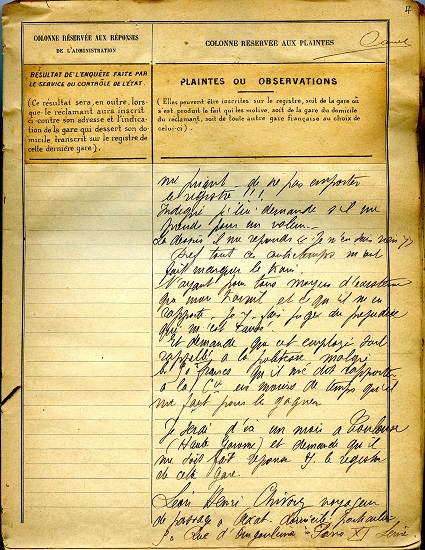 4
COLONNE RÉSERVÉE AUX RÉPONSES
DE L'ADMINISTRATION
COLONNE RÉSERVÉE AUX PLAINTES
RÉSULTAT DE L'ENQUÊTE FAITE PAR
LE SERVICE OU CONTRÔLE DE L'ÉTAT.
(Ce résultat sera, en outre, lors-
que le réclamant aura inscrit
ci-contre son adresse et l'indica-
tion de la gare qui dessert son do-
micile, transcrit sur le registre de
cette dernière gare).
PLAINTES OU OBSERVATIONS
(Elles peuvent être inscrites sur le registre, soit de la gare où
s'est produit le fait qui les motive, soit de la gare du domicile
du réclamant, soit de toute autre gare française au choix de
celui-ci).
me priant de ne pas emporter
le registre !!!
Indigné j'lui demande s'il me
prends pour un voleur
La dessus il me reponds « Je n'en sais rien »
Bref tout ce contretemps m'a
fait manquer le train.
N'ayant pour tous moyens d'existence
que mon travail et ce qu'il m'en
rapporte je
juger du prejudice
qui m'est causé.
Et demande que cet employé soit
rappellé a la politesse malgré
francs qu'il me doit rapporter
a la Cie en moins de temps qu'il
me faut pour le gagner
Je serai d'ici un mois a Toulouse
(Haute Garonne) et demande qu'il
me soit fait reponse s. le registre
de cette Gare.
Henri
voyageur
de passage a Axat. domicile particulier
Rue d'Angouleme Paris XI